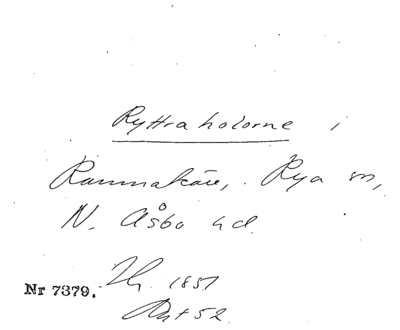 Ryttraholorne i
Rammakärr, Rya sn,
N. Åsbo hd
Nr 7379. Th. 1851
Ant 52.